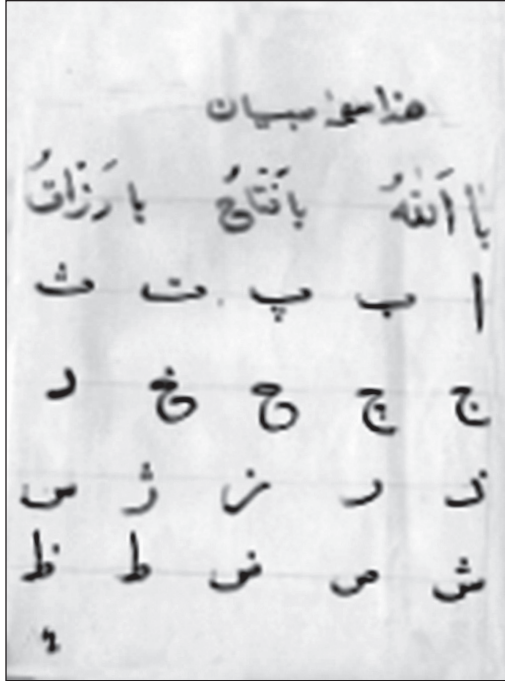 هذا سوا صبیان
یا اَللهُ یا فَتَّاحُ یا رَزَّاقُ
ا ب پ ت ث
ج چ ح خ د
ذ ر ز ژ س
ش ص ض ط ظ